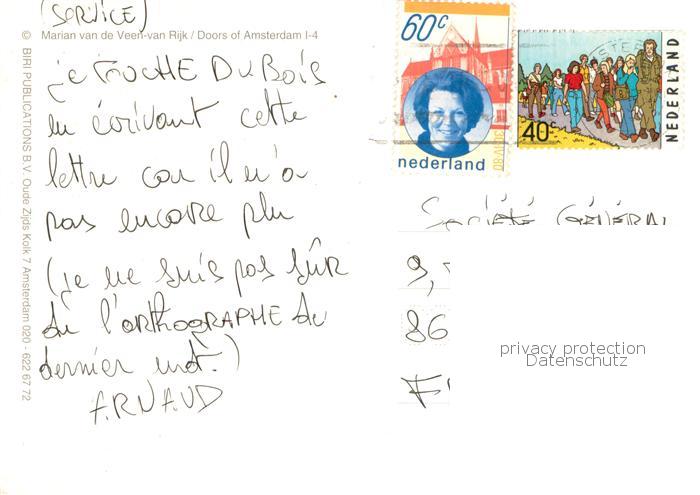 (SERVICE)
© Marian van de Veen-van Rijk / Doors of Amsterdam I-4
© BIRI PUBLICATIONS B.V. Oude Zijds Kolk 7 Amsterdam 020 - 622 67 72
je TOUCHE DU BOIS
en écrivant cette
lettre car il n'a
pas encore plu
(je ne suis pas sûr
de l'ORTHOGRAPHE du
dernier mot.)
ARNAUD
60c
nederland
40c
NEDERLAND
SOCIÉTÉ GÉNÉRAL
9,
86
privacy protection
Datenschutz